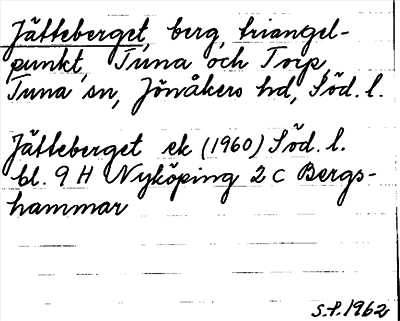 Jätteberget, berg, triangel-
punkt, Tuna och Torp,
Tuna sn, Jönåkers hd, Söd. l.
Jätteberget ek (1960) Söd. l.
bl. 9 H Nyköping 2 c Bergs-
hammar
S.f. 1962